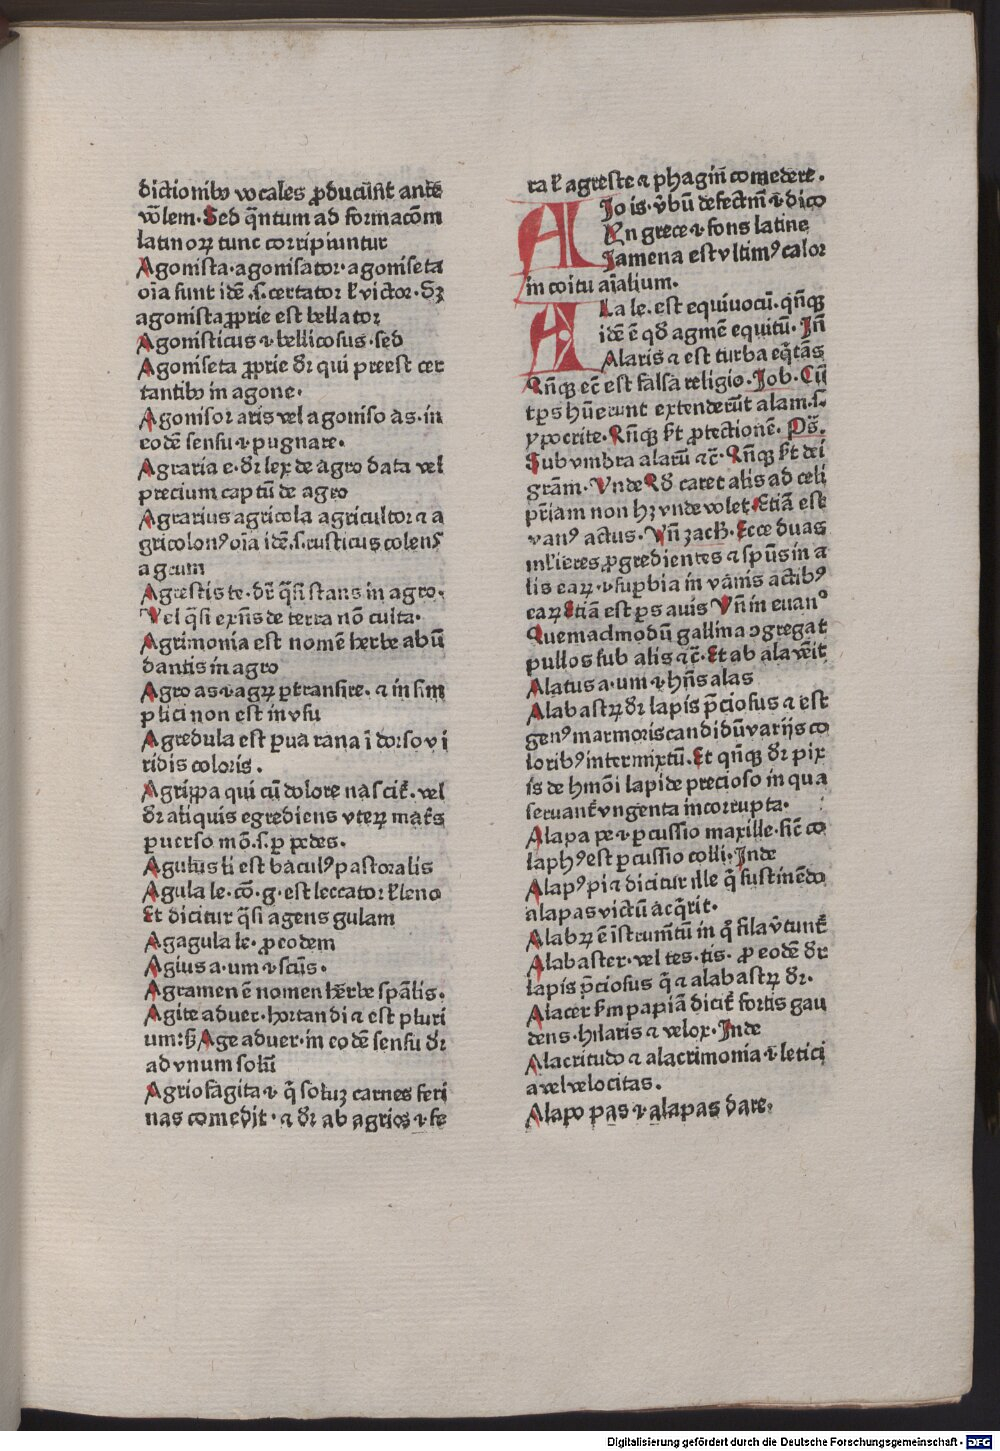 dictionibꝫ vocales ꝓducūt̄ ante
vōlem. Sed qn̄tum ad formacōm
latinoꝝ tunc corripiuntur
Agonista. agonisator. agoniseta
oīa sunt idē .s. certator ł victor. Sꝫ
agonista ꝓprie est bellator
Agonisticus .i. bellicosus . sed
Agoniseta ꝓprie dr̄ qui preest cer
tantibꝫ in agone.
Agonisor aris vel agoniso as. in
eodē sensu .i. pugnare.
Agraria e. dr̄ lex de agro data vel
precium captū de agro
Agrarius agricola agricultor ⁊ a
gricolonꝰ oīa idē .s. rusticus colens
agrum
Agrestis te. dr̄ qͣsi stans in agro.
Vel qͣsi exn̄s de terra nō culta.
Agrimonia est nomē herbe abū
dantis in agro
Agro as .i. agꝝ ꝑtransire. ⁊ in sim
plici non est in vsu
Agredula est ꝑua rana ī dorso vi
ridis coloris.
Agrippa qui cū dolore nascit᷑. vel
dr̄ aliquis egrediens vteꝝ mat̄s
ꝑuerso mō .s. ꝑ pedes.
Agulus li est baculꝰ pastoralis
Agula le. cō. g. est leccator ł leno
Et dicitur qͣsi agens gulam
Agagula le. ꝓ eodem
Agius a. um .i. scūs.
Agramen ē nomen herbe spālis.
Agite aduer. hortandi ⁊ est pluri
um: sꝫ Age aduer. in eodē sensu dr̄
ad vnum solū
Agriofagita .i. qͥ soluꝫ carnes feri
nas comedit. ⁊ dr̄ ab agrios .i. fe
ra ł agreste ⁊ phagin̄ comedere.
Aio is. v̄bū defectm̄ .i. dico
En grece .i. fons latine
Jamena est vltimꝰ calor
in coitu aīalium.
Ala le. est equiuocū. qn̄qꝫ
idē ē qd̄ agmē equitū. Jn̄
Alaris ⁊ est turba eqͥtās
Qn̄qꝫ ec̄ est falsa religio. Job. Cū
tp̄s hūerunt extenderūt alam .s.
ypocrite. Qn̄qꝫ st̄ ꝓtectionē. Ps̄.
Sub vmbra alarū ⁊c̄. Qn̄qꝫ st̄ dei
grām. Vnde Qd̄ caret alis ad celi
pr̄iam non hꝫ vnde volet. Etiā est
vanꝰ actus. Vn̄ zach. Ecce duas
ml̓ieres ꝓgredientes ⁊ spūs in a
lis eaꝝ .i. suꝑbia in vanis actibꝰ
eaꝝ Etiā est ꝑs auis Vn̄ in euanᵒ
Quemadmodū gallina ↄgregat
pullos sub alis ⁊c̄. Et ab ala veīt
Alatus a. um .i. hn̄s alas
Alabastꝝ dr̄ lapis p̄ciosus ⁊ est
genꝰ marmoris candidū varijs co
loribꝰ intermixtū. Et qn̄qꝫ dr̄ pix
is de hmōi lapide precioso in qua
seruant᷑ vngenta incorrupta.
Alapa pe .i. ꝑcussio maxille. sic̄ co
laphꝰ est ꝑcussio colli. Jnde
Alapꝰ pi ⁊ dicitur ille qͥ sustinēdo
alapas victū acqͥrit.
Alabꝝ ē īstrumētū in qͦ fila v̄tunt᷑
Alabaster. vel tes. tis. ꝓ eodē dr̄
lapis p̄ciosus qͥ ⁊ alabastꝝ dr̄.
Alacer ẜm papiā dicit᷑ fortis gau
dens. hilaris ⁊ velox. Jnde
Alacritudo ⁊ alacrimonia .i. letici
a vel velocitas.
Alapo pas .i. alapas dare.
Digitalisierung gefördert durch die Deutsche Forschungsgemeinschaft - DFG